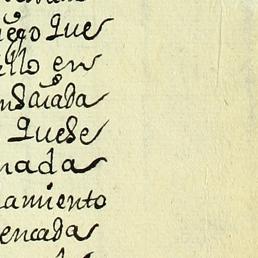 iego que
ello en
ensaiada
quese
nada
amiento
encada